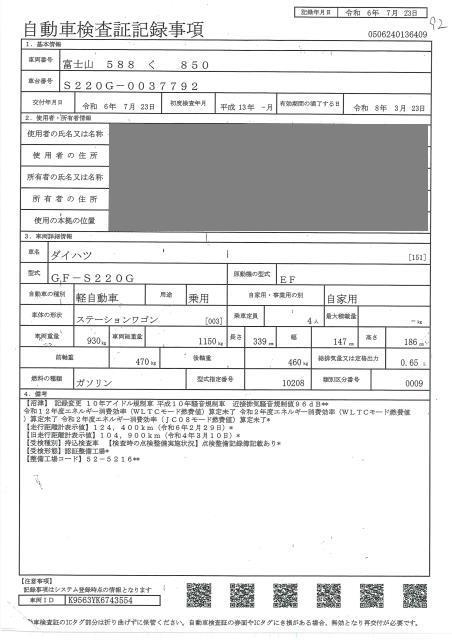 記録年月日 令和 6年 7月 23日
92
自動車検査証記録事項
0506240136409
1．基本情報
車両番号 富士山 588 く 850
車台番号 S220G-0037792
交付年月日 令和 6年 7月 23日 初度検査年月 平成 13年 -月 有効期間の満了する日 令和 8年 3月 23日
2．使用者・所有者情報
使用者の氏名又は名称
使用者の住所
所有者の氏名又は名称
所有者の住所
使用の本拠の位置
3．車両詳細情報
車名 ダイハツ [151]
型式 GF-S220G 原動機の型式 EF
自動車の種別 軽自動車 用途 乗用 自家用・事業用の別 自家用
車体の形状 ステーションワゴン [003] 乗車定員 4人 最大積載量 -kg
車両重量 930kg 車両総重量 1150kg 長さ 339cm 幅 147cm 高さ 186cm
前軸重 470kg 後軸重 460kg 総排気量又は定格出力 0.65L
燃料の種類 ガソリン 型式指定番号 10208 類別区分番号 0009
4．備考
【沼津】 記録変更 10年アイドル規制車 平成10年騒音規制車 近接排気騒音規制値96dB**
令和12年度エネルギー消費効率（WLTCモード燃費値）算定未了 令和2年度エネルギー消費効率（WLTCモード燃費値
）算定未了 令和2年度エネルギー消費効率（JC08モード燃費値）算定未了*
【走行距離計表示値】124,400km（令和6年2月29日）*
【旧走行距離計表示値】104,900km（令和4年3月10日）*
【受検種別】持込検査車 【検査時の点検整備実施状況】点検整備記録簿記載あり*
【受検形態】認証整備工場*
【整備工場コード】52-5216**
【注意事項】
記録事項はシステム登録時点の情報となります
車両ID K9563YK6743554
自動車検査証のICタグ部分は折り曲げずに保管ください。自動車検査証の券面やICタグにき損がある場合、無効となり再交付が必要です。